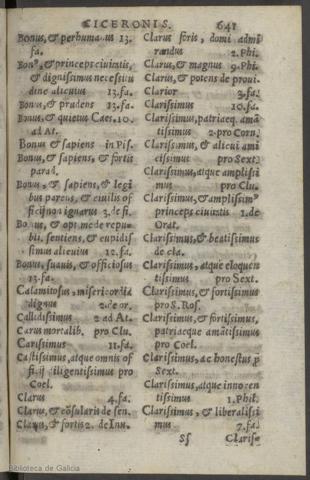 CICERONIS. 641
Bonus, & perhumanus 13.
fa.
Bonꝰ, & princeps ciuitatis,
& dignissimus necessitu
dine alicuius 13.fa.
Bonus, & prudens 13.fa.
Bonus, & quietus Caes.10.
ad At.
Bonus & sapiens in Pis.
Bonus, & sapiens, & fortis
parad.
Bonus, & sapiens, & legi
bus parens, & ciuilis of
ficij non ignarus 3.de fi.
Bonus, & opt. me de repu-
bli. sentiens, & cupidis
simus alicuius 12.fa.
Bonus, suauis, & officiosus
13.fa.
Calamitosus, misericordia
dignus 2.de or.
Callidissimus 2 ad At.
Carus mortalib. pro Clu.
Carissimus 11.fa.
Castissimus, atque omnis of
ficij diligentissimus pro
Coel.
Clarus 4.fa.
Clarus, & cōsularis de sen.
Clarus, & fortis 2. de Inu.
Clarus foris, domi admi
randus 2.Phi.
Clarus, & magnus 9.Phi.
Clarus, & potens de proui.
Clarior 3.fa.
Clarissimus 10.fa.
Clarissimus, patriaeq. amā
tissimus 2.pro Corn.
Clarissimus, & alicui ami
cissimus pro Sext.
Clarissimus, atque amplissi
mus pro Clu.
Clarissimus, & amplissimꝰ
princeps ciuitatis 1.de
Orat.
Clarissimus, & beatissimus
de cla.
Clarissimus, atque eloquen
tissimus pro Sext.
Clarissimus, & fortissimus
pro S. Ros.
Clarissimus, & fortissimus,
patriaeque amātissimus
pro Coel.
Clarissimus, ac honestus p
Sext.
Clarissimus, atque innocen
tissimus 1.Phil.
Clarissimus, & liberalissi
mus 7.fa.
Ss Clariss-
Biblioteca de Galicia